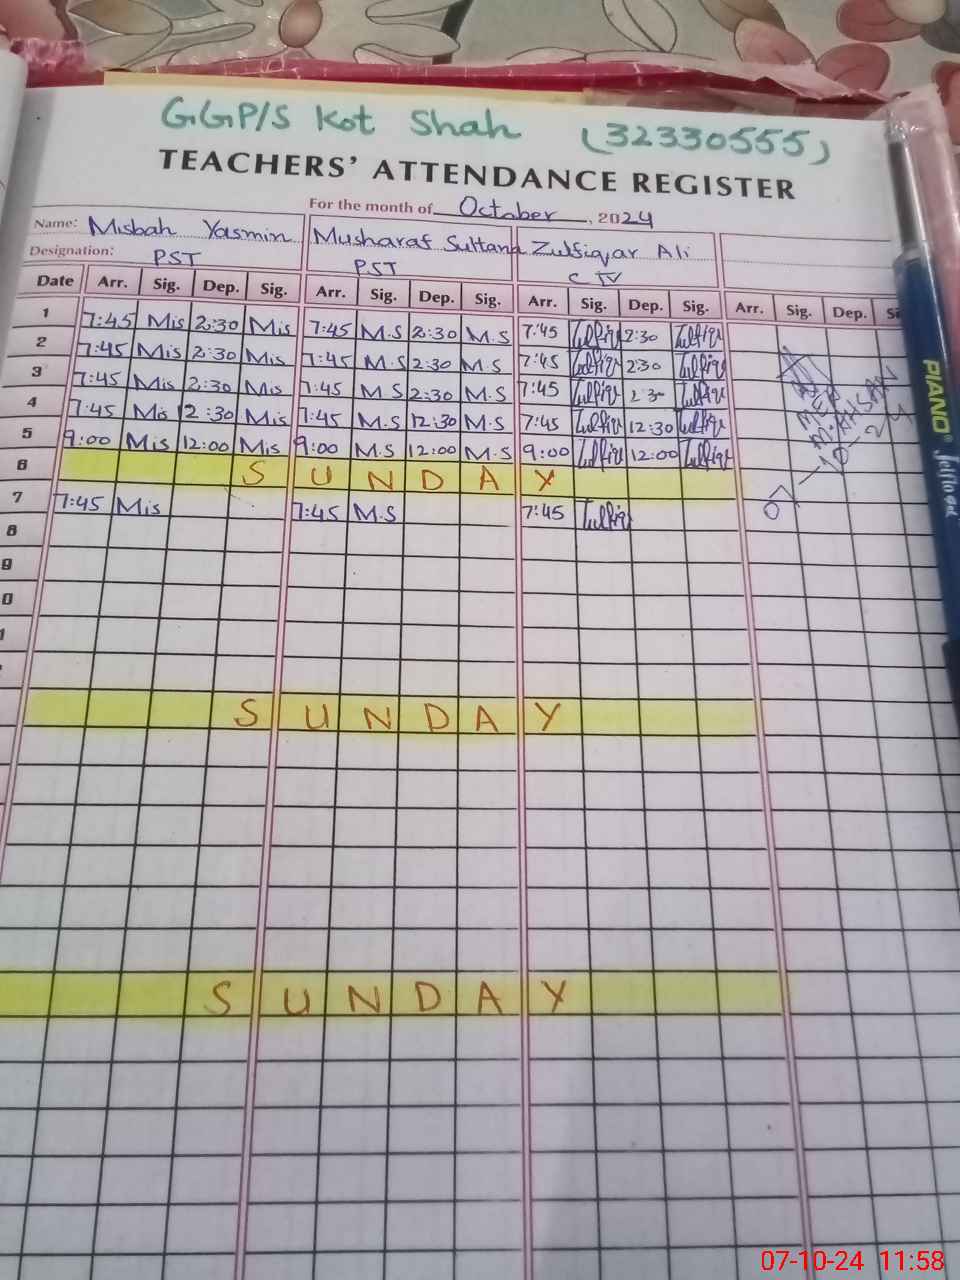 GGP/S Kot Shah (32330555)
TEACHERS' ATTENDANCE REGISTER
For the month of October, 2024
Name: Misbah Yasmin Musharaf Sultana Zulfiqar Ali
Designation: PST PST
Date Arr. Sig. Dep. Sig. Arr. Sig. Dep. Sig. Arr. Sig. Dep. Sig. Arr. Sig. Dep.
1 7:45 Mis 2:30 Mis 7:45 M.S 2:30 M.S 7:45 Zulfiqr 2:30 Zulfiqr
2 7:45 Mis 2:30 Mis 7:45 M.S 2:30 M.S 7:45 Zulfiqr 2:30 Zulfiqr
3 7:45 Mis 2:30 Mis 7:45 M S 2:30 M.S 7:45 Zulfiqr 2:30 Zulfiqr
4 7:45 Mis 12:30 Mis 7:45 M.S 12:30 M.S 7:45 Zulfiqr 12:30 Zulfiqr
5 9:00 Mis 12:00 Mis 9:00 M.S 12:00 M.S 9:00 Zulfiqr 12:00 Zulfiqr
6 SUNDAY
7 7:45 Mis 7:45 M.S 7:45 Zulfiqr
8
9
0
1
SUNDAY
SUNDAY
M. AHSAN
PIANO
07-10-24 11:58